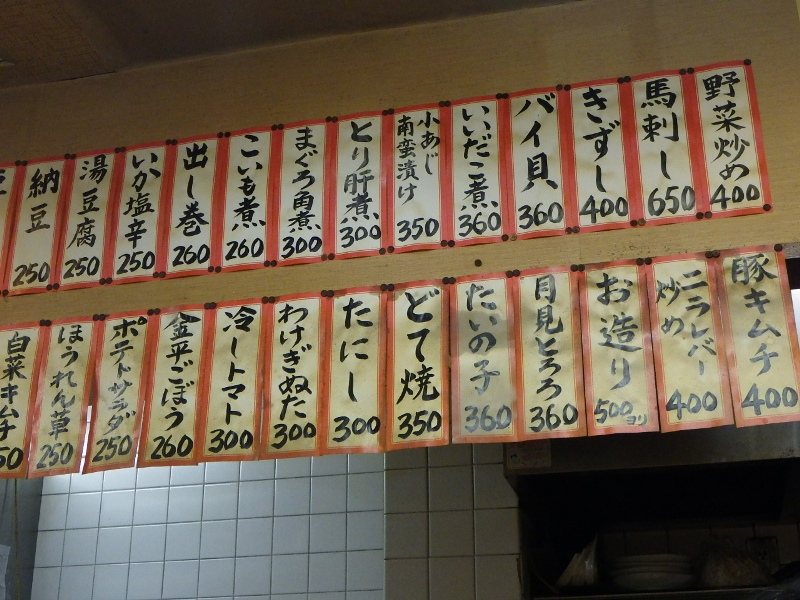 野菜炒め 400
馬刺し 650
きずし 400
バイ貝 360
いいだこ煮 360
小あじ
南蛮漬け 350
とり肝煮 300
まぐろ角煮 300
こいも煮 260
出し巻 260
いか塩辛 250
湯豆腐 250
納豆 250
豚キムチ 400
ニラレバー
炒め 400
お造り 500ヨリ
月見とろろ 360
たいの子 360
どて焼 350
たにし 300
わけぎぬた 300
冷しトマト 300
金平ごぼう 260
ポテトサラダ 250
ほうれん草 250
白菜キムチ